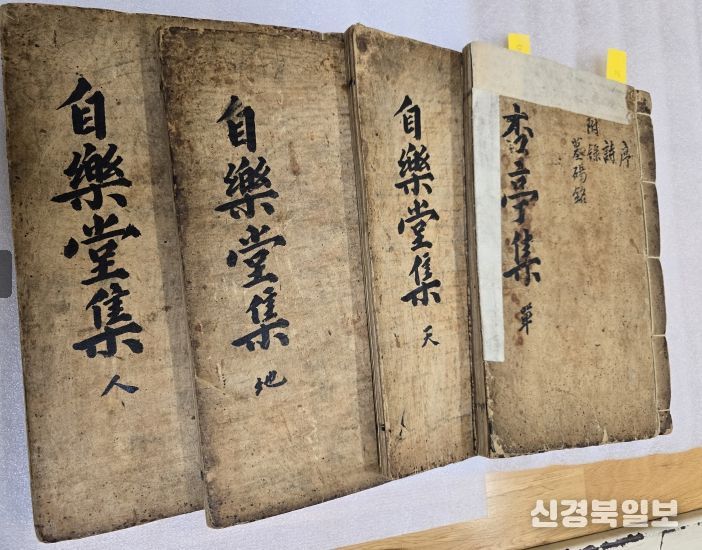 序
詩
附錄
墓碣銘
杏亭集
自樂堂集 天
自樂堂集 地
自樂堂集 人
신경북일보